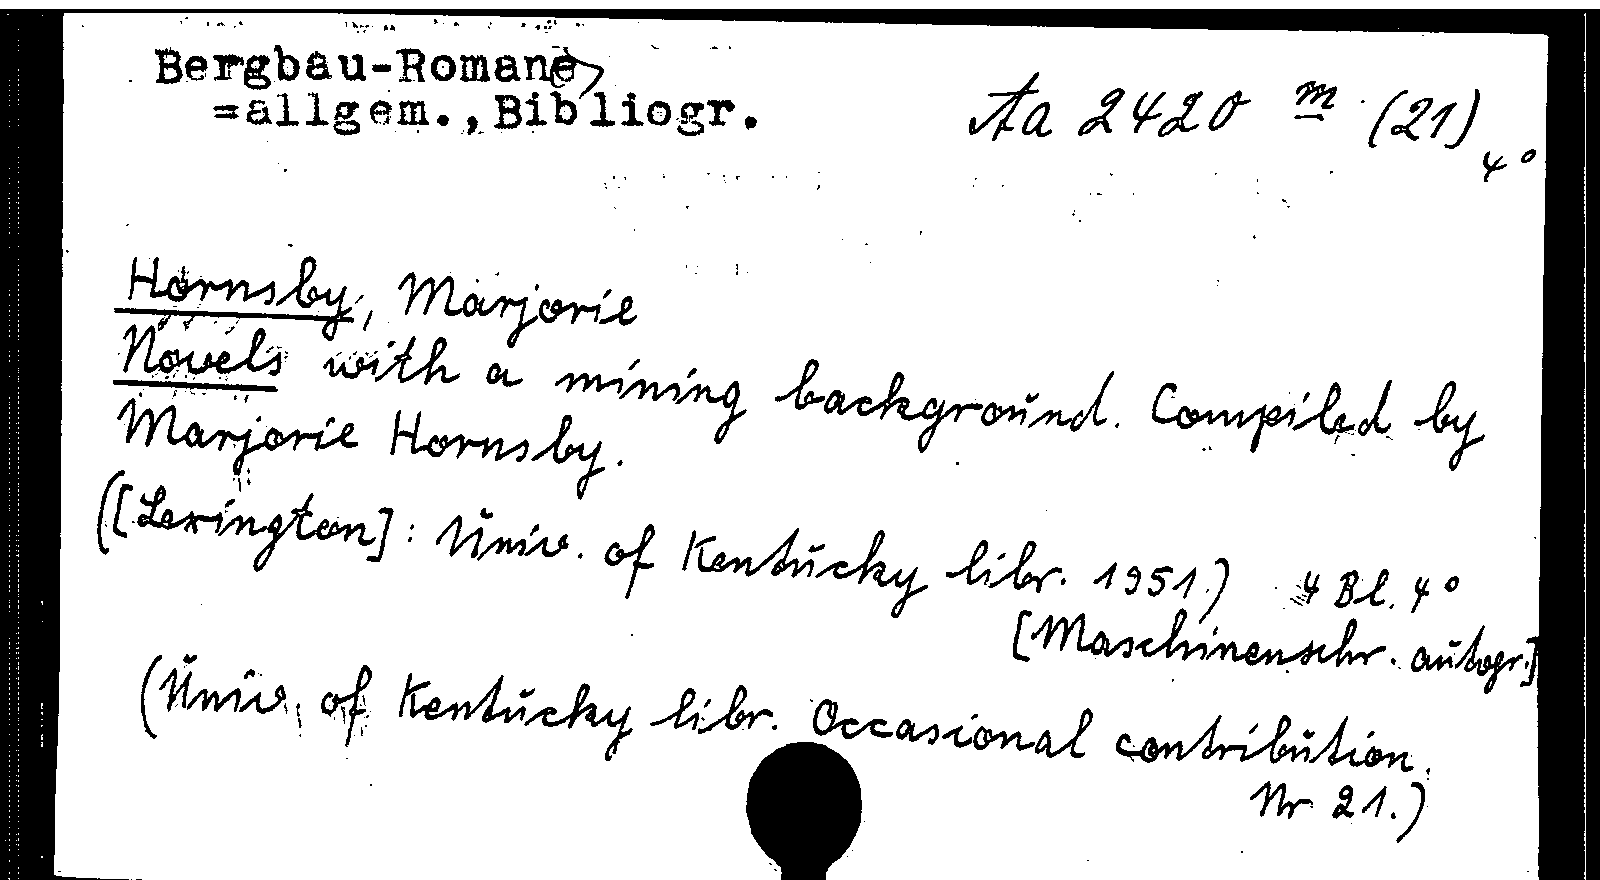 Bergbau-Romane
=allgem., Bibliogr.
Aa 2420 m (21) 4°
Hornsby, Marjorie
Novels with a mining background. Compiled by
Marjorie Hornsby.
([Lexington]: Univ. of Kentucky libr. 1951.) 4 Bl. 4°
[Maschinenschr. autogr.]
(Univ. of Kentucky libr. Occasional contribution.
Nr 21.)